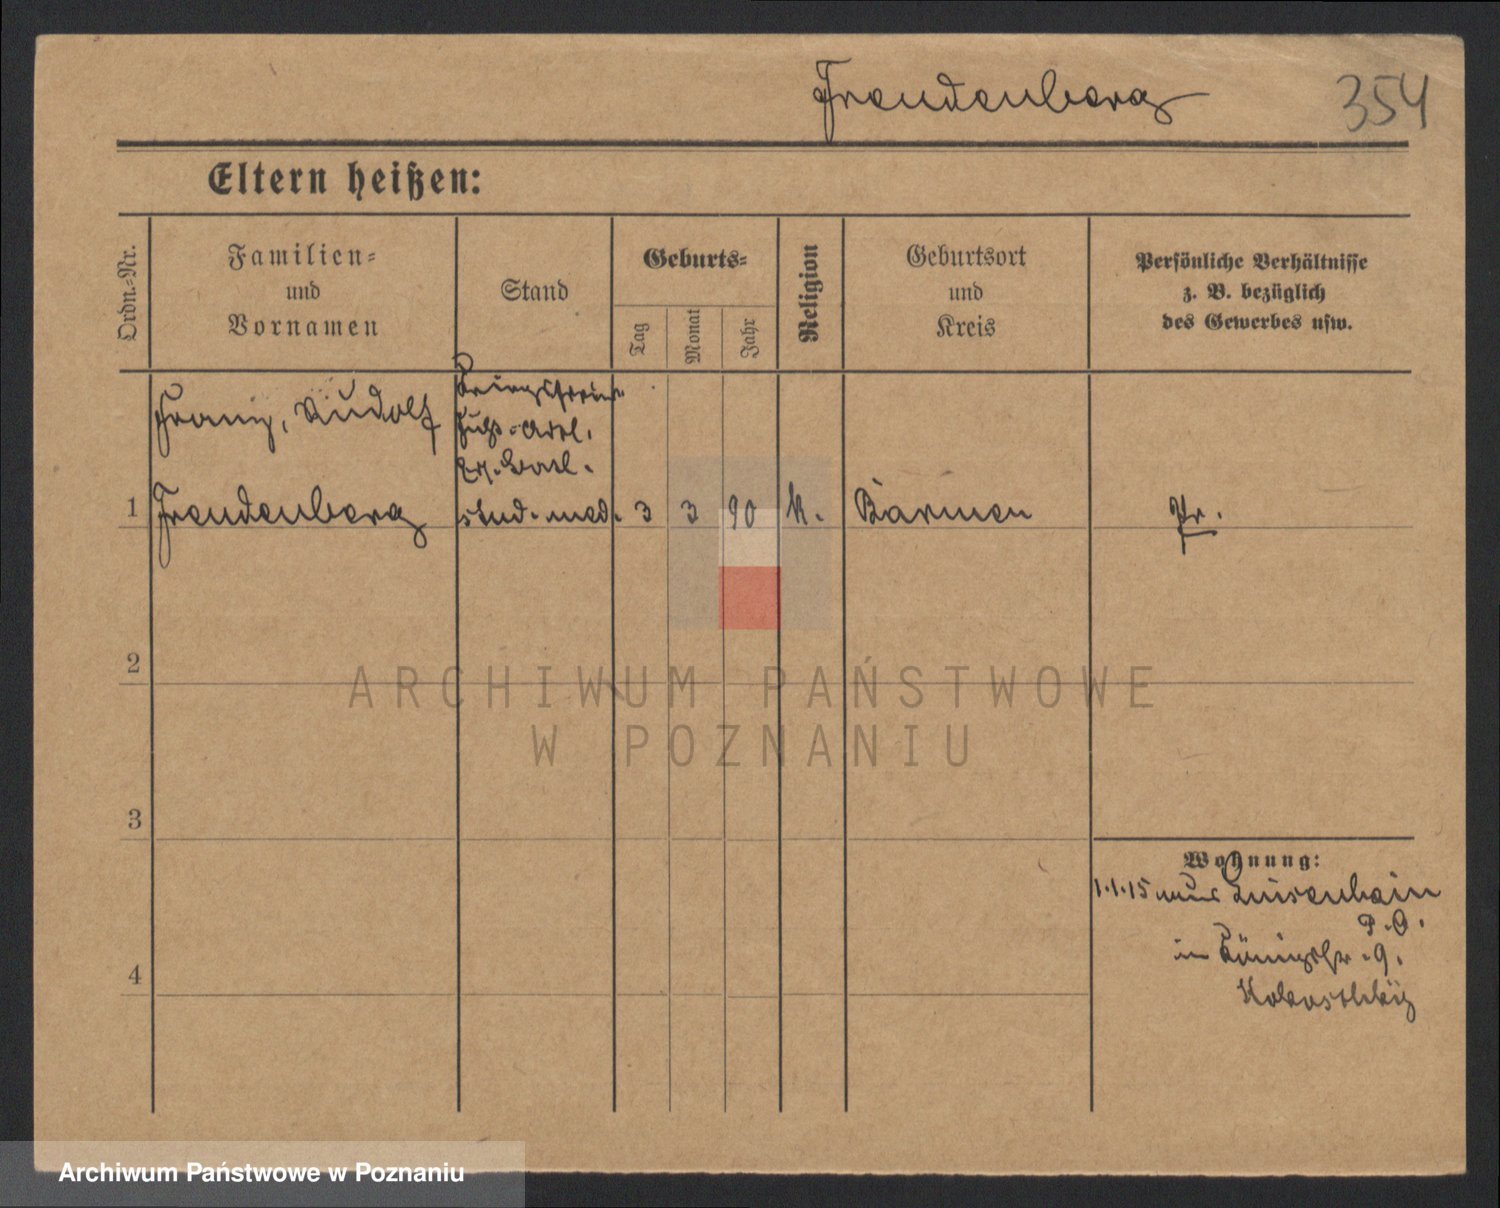 Freudenberg 354
Eltern heißen:
Ordn.-Nr.
Familien-
und
Vornamen
Stand
Geburts-
Tag
Monat
Jahr
Religion
Geburtsort
und
Kreis
Persönliche Verhältnisse
z. B. bezüglich
des Gewerbes usw.
Franz, Rudolf
Kriegsfreiw.
Fuß-Artl.
Ers. Batl.
1 Freudenberg stud. med. 3 3 90 k. Barmen Pr.
2
3
4
Wohnung:
1.1.15 Luisenhain
P.O.
in Königstr. 9.
ARCHIWUM PAŃSTWOWE
W POZNANIU
Archiwum Państwowe w Poznaniu